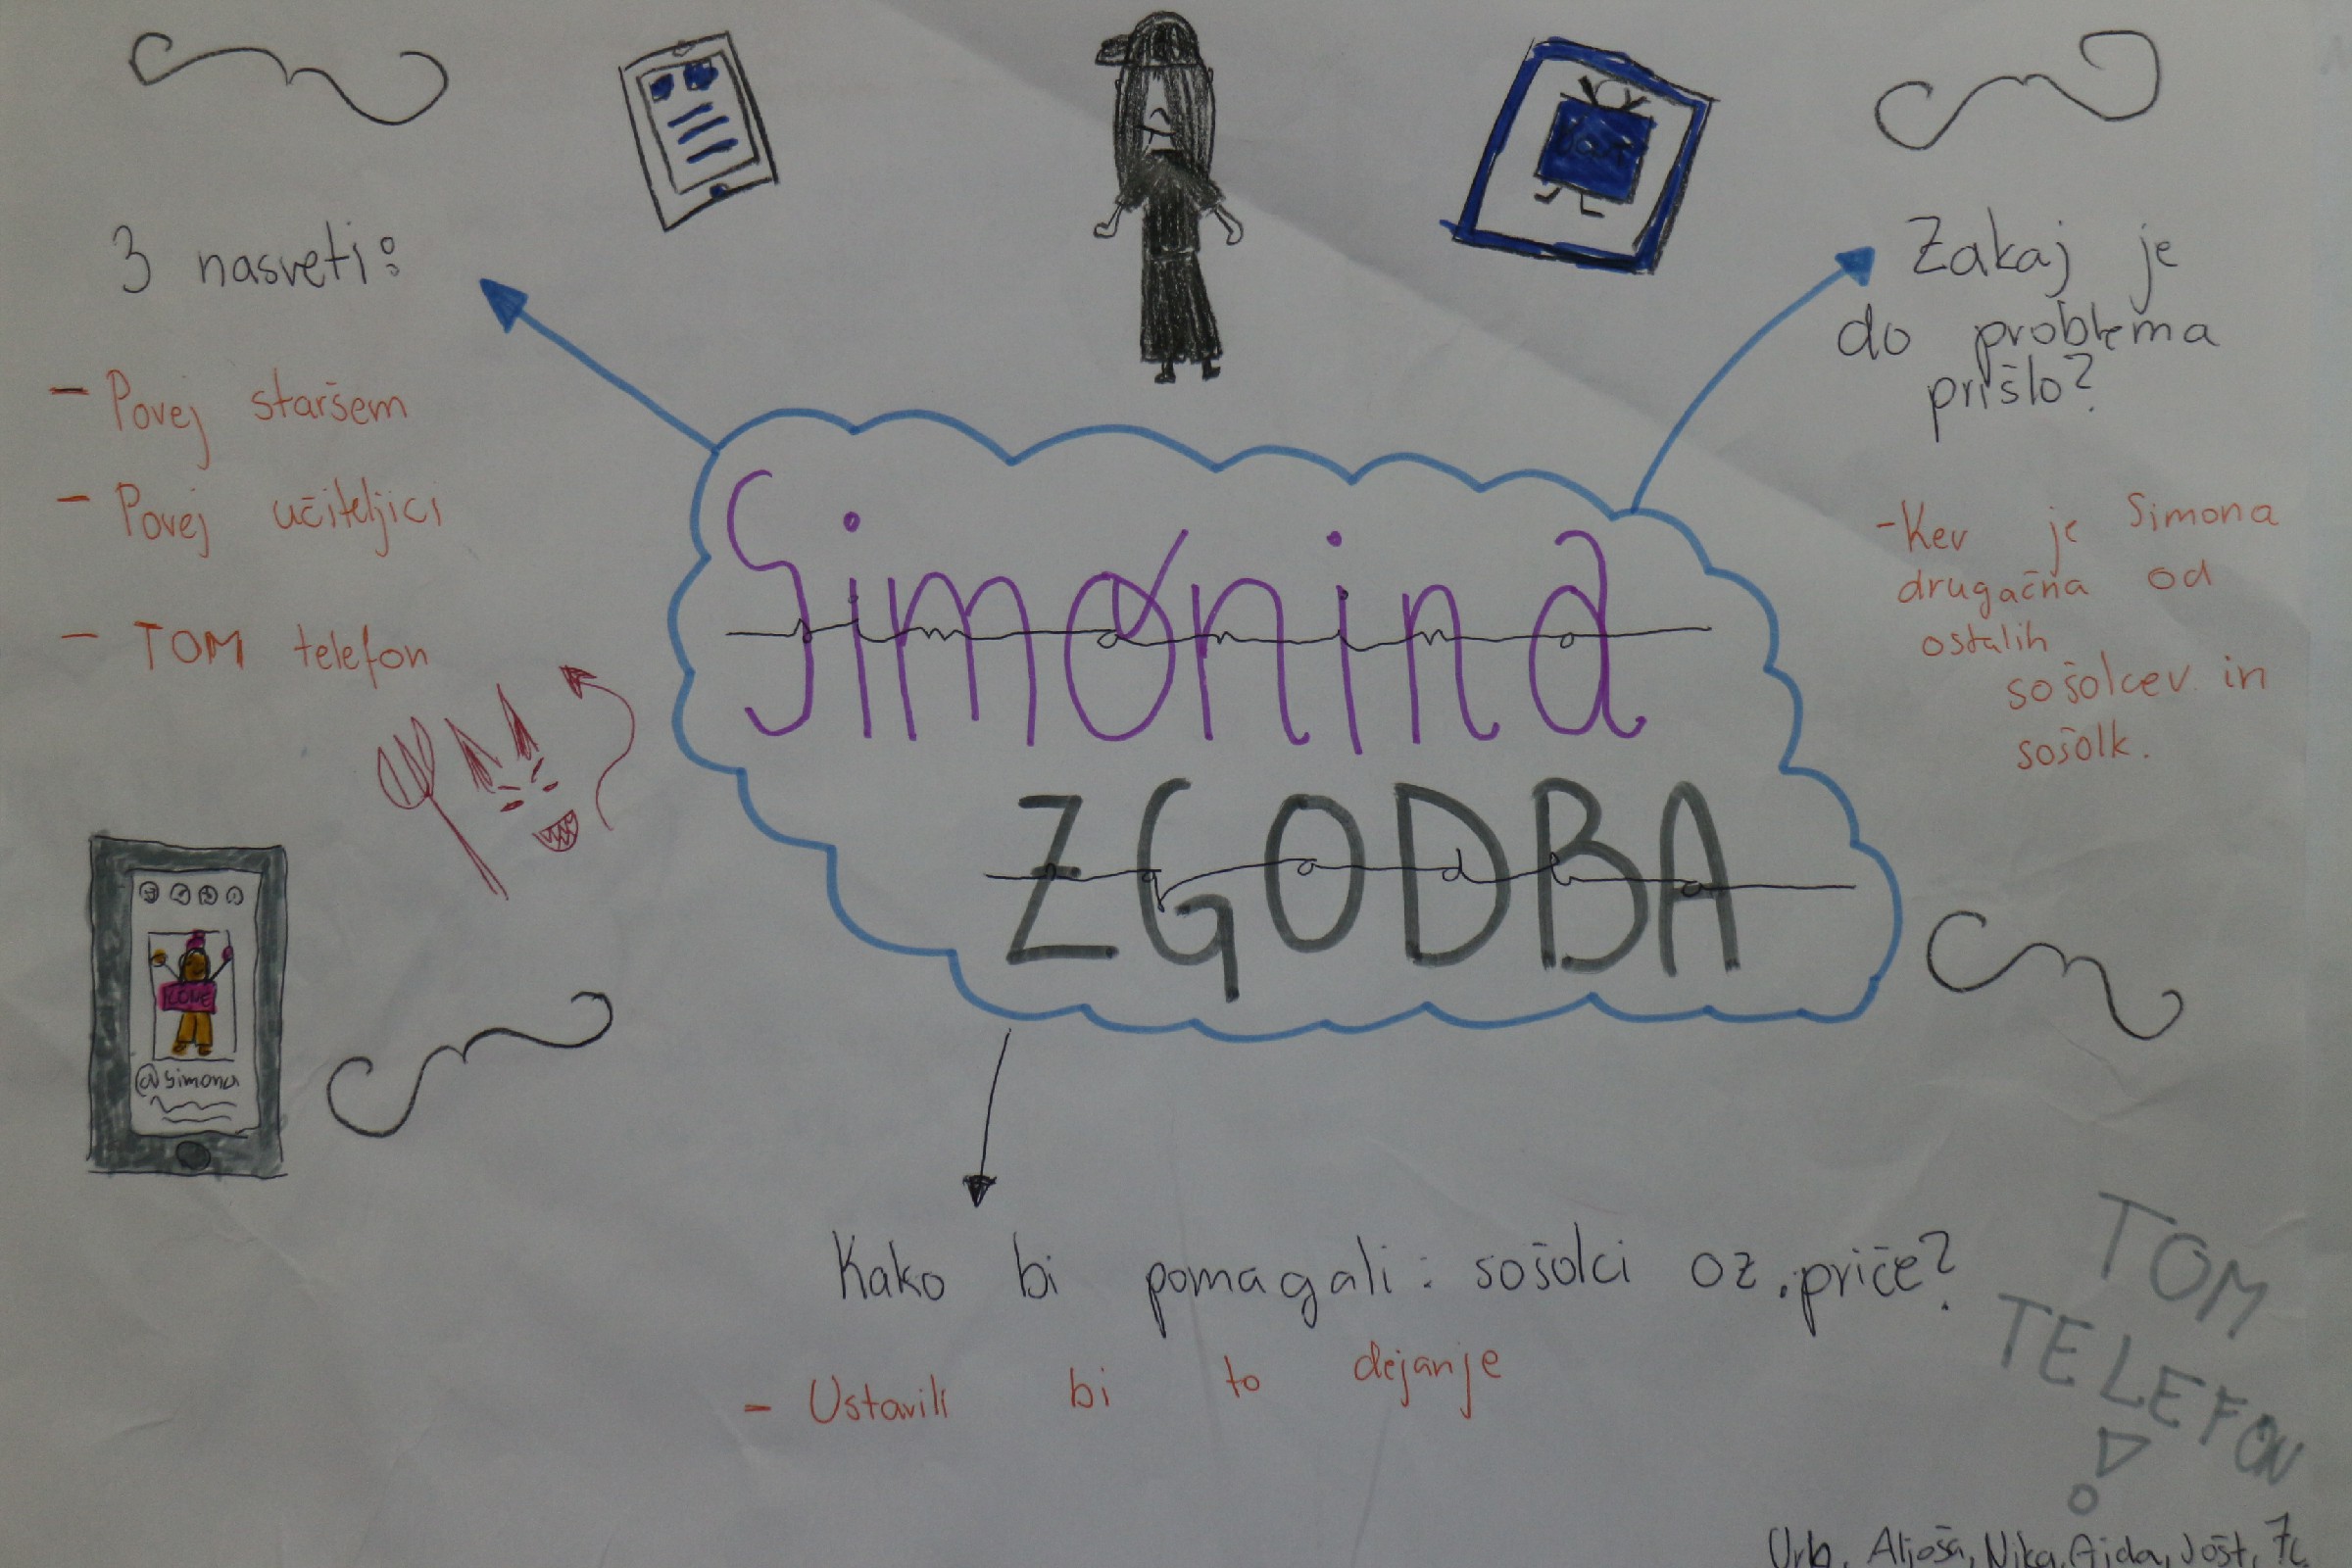 3 nasveti:
- Povej staršem
- Povej učiteljici
- TOM telefon
Simonina
Simonina
ZGODBA
zgodba
Zakaj je
do problema
prišlo?
- Ker je Simona
drugačna od
ostalih
sošolcev in
sošolk.
LOVE
@simona
Kako bi pomagali: sošolci oz. priče?
- Ustavili bi to dejanje
TOM
TELEFON
!
Urb, Aljoša, Nika, Ajda, Jošt, 7c